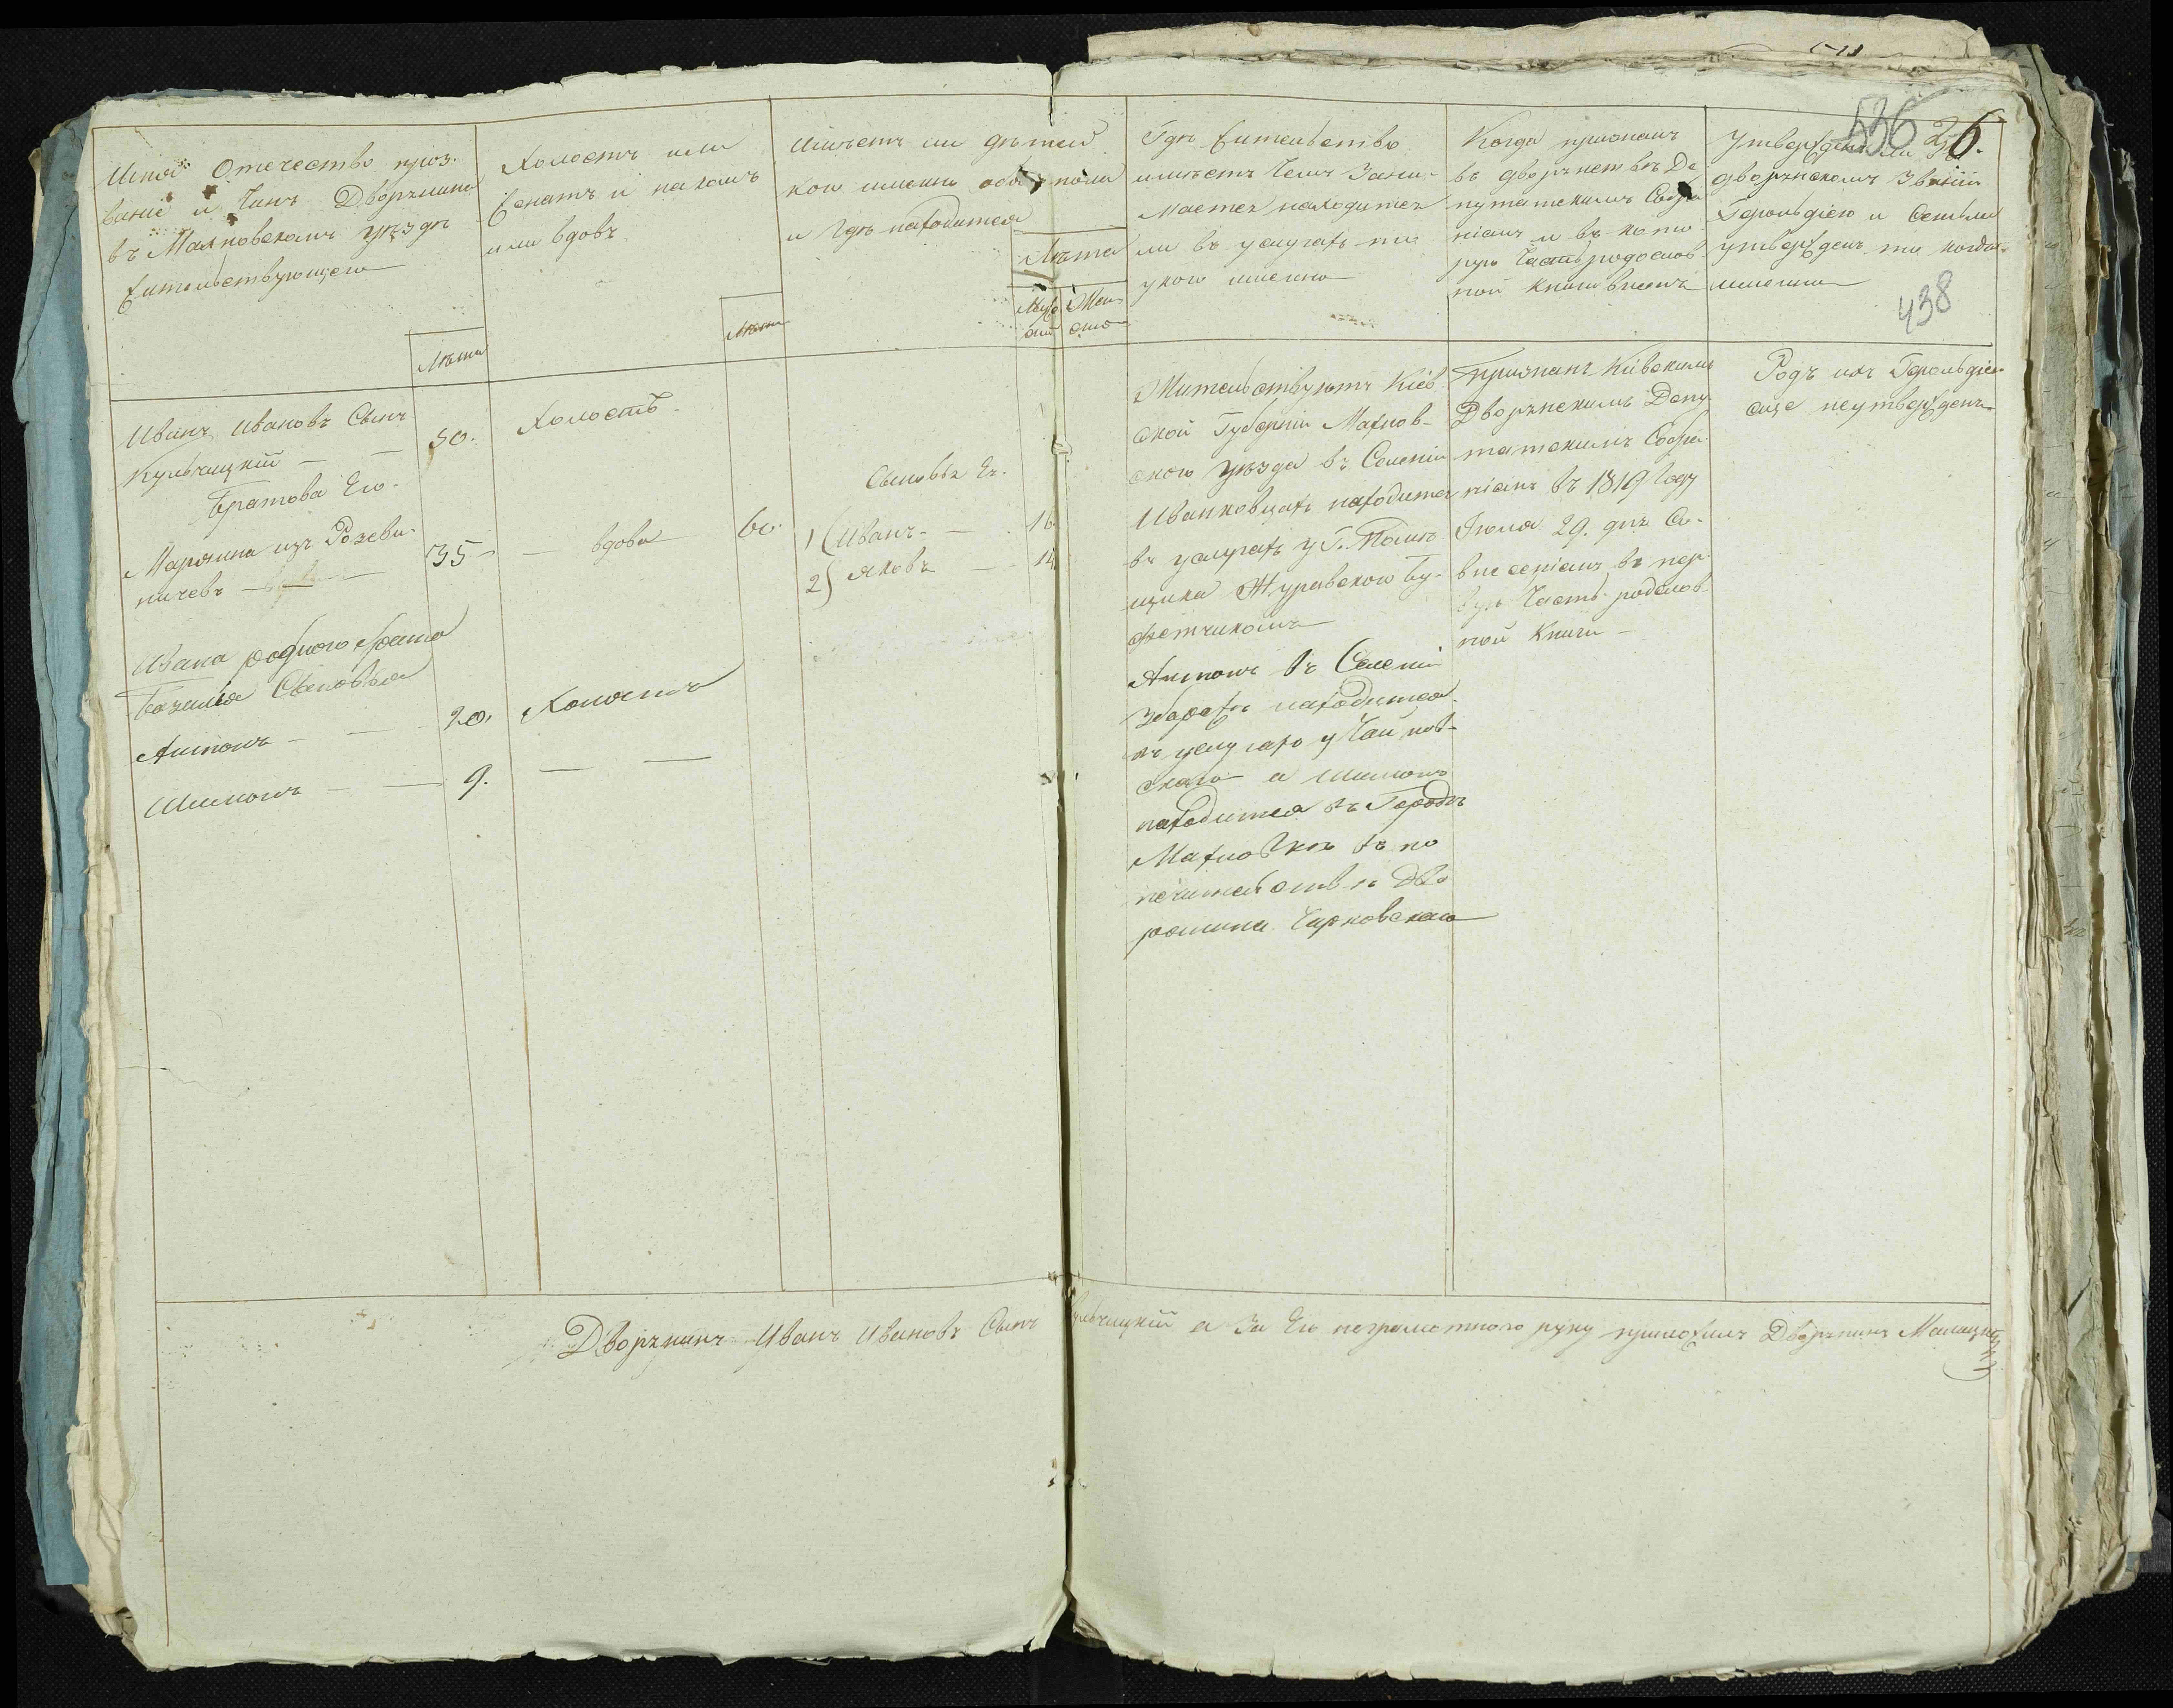 536 26.
438
Имя Отечество проз-
вание и Чинъ Дворянина
въ Махновскомъ уѣздѣ
жительствующаго
Лѣта
Холостъ или
женатъ и на комъ
или вдовъ
Лѣта
Имѣетъ ли дѣтей
кои именно обоего пола
и гдѣ находится
Лѣта
Муже
ска
Жен
ска
Гдѣ жительство
имѣетъ чемъ Зани-
мается находится
ли въ услугахъ и
у кого именно
Когда признанъ
въ дворянствѣ Де
путатскимъ Собра
ніемъ и въ кото
рую Часть родослов-
ной Книги внесенъ
Утвержденъ ли въ
дворянскомъ Званіи
Герольдіею и Если
утвержденъ то когда
именно
Иванъ Ивановъ Сынъ
Кульчицкій
50.
Холостъ.
Братова Его
Марянна изъ
35
вдова
Сыновья Ея.
1) Иванъ 16
2) Яковъ 14
Ивана родного брата
Сыновья
Антонъ 20. Холостъ
Шимонъ 9.
Жительствуютъ Кіев-
ской Губерніи Махнов-
ского уѣзда въ Селеніи
Иванковцахъ находится
въ услугахъ у Г. Помѣ
щика Журавского Бу-
фетчикомъ
Антонъ въ Селеніи
Збаражѣ находится
въ услугахъ у Чайков-
скаго а Шимонъ
находится въ Городѣ
Махновкѣ въ по
печительствѣ Дво
рянина Чарковскаго
Признанъ Кіевскимъ
Дворянскимъ Депу
татскимъ Собра
ніемъ въ 1819 Году
Іюля 29. дня Со
внесеніемъ въ пер
вую Часть родослов-
ной Книги
Родъ ихъ Герольдіею
еще неутвержденъ
Дворянинъ Иванъ Ивановъ Сынъ Кульчицкій а За Его неграмотного руку приложилъ Дворянинъ